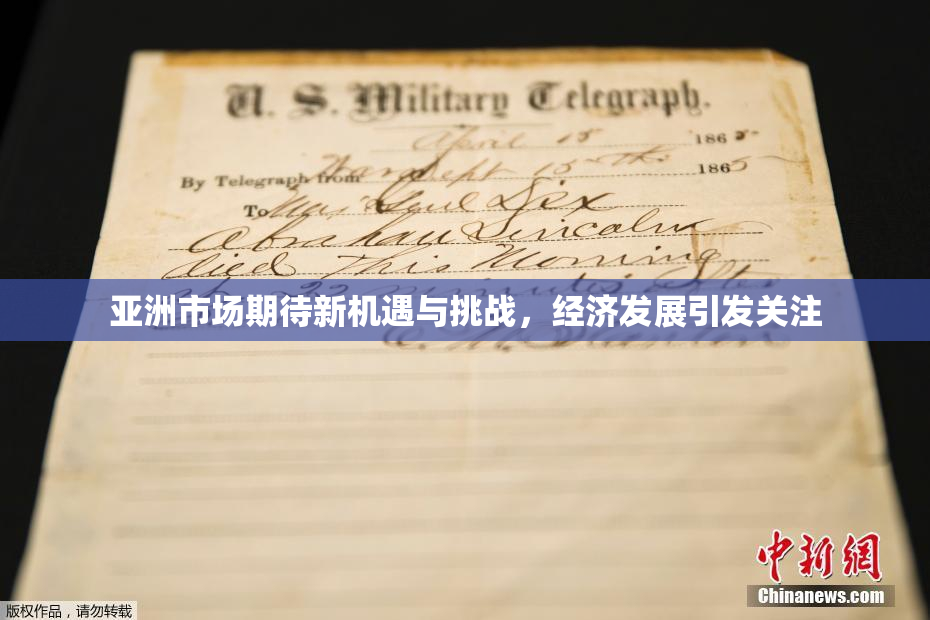 U. S. Military Telegraph.
April 15 1865
By Telegraph from War Dept 15th 1865
To Maj Genl Dix
Abraham Lincoln
died This Morning
22 minutes after
亚洲市场期待新机遇与挑战，经济发展引发关注
E. M. Stanton
中新网
Chinanews.com
版权作品，请勿转载